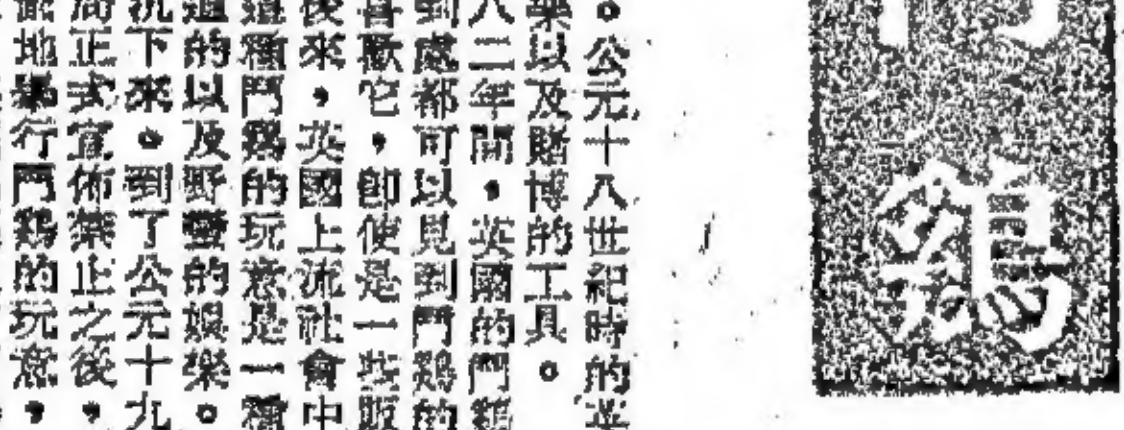 鷄
。公元十八世紀時的英
樂以及賭博的工具。
八二年間，英國的鬥鷄
到處都可以見到鬥鷄的
喜歡它，卽使是一些販
後來，英國上流社會中
這種鬥鷄的玩意是一種
道的以及野蠻的娛樂。
沉下來。到了公元十九
局正式宣佈禁止之後，
地舉行鬥鷄的玩意，